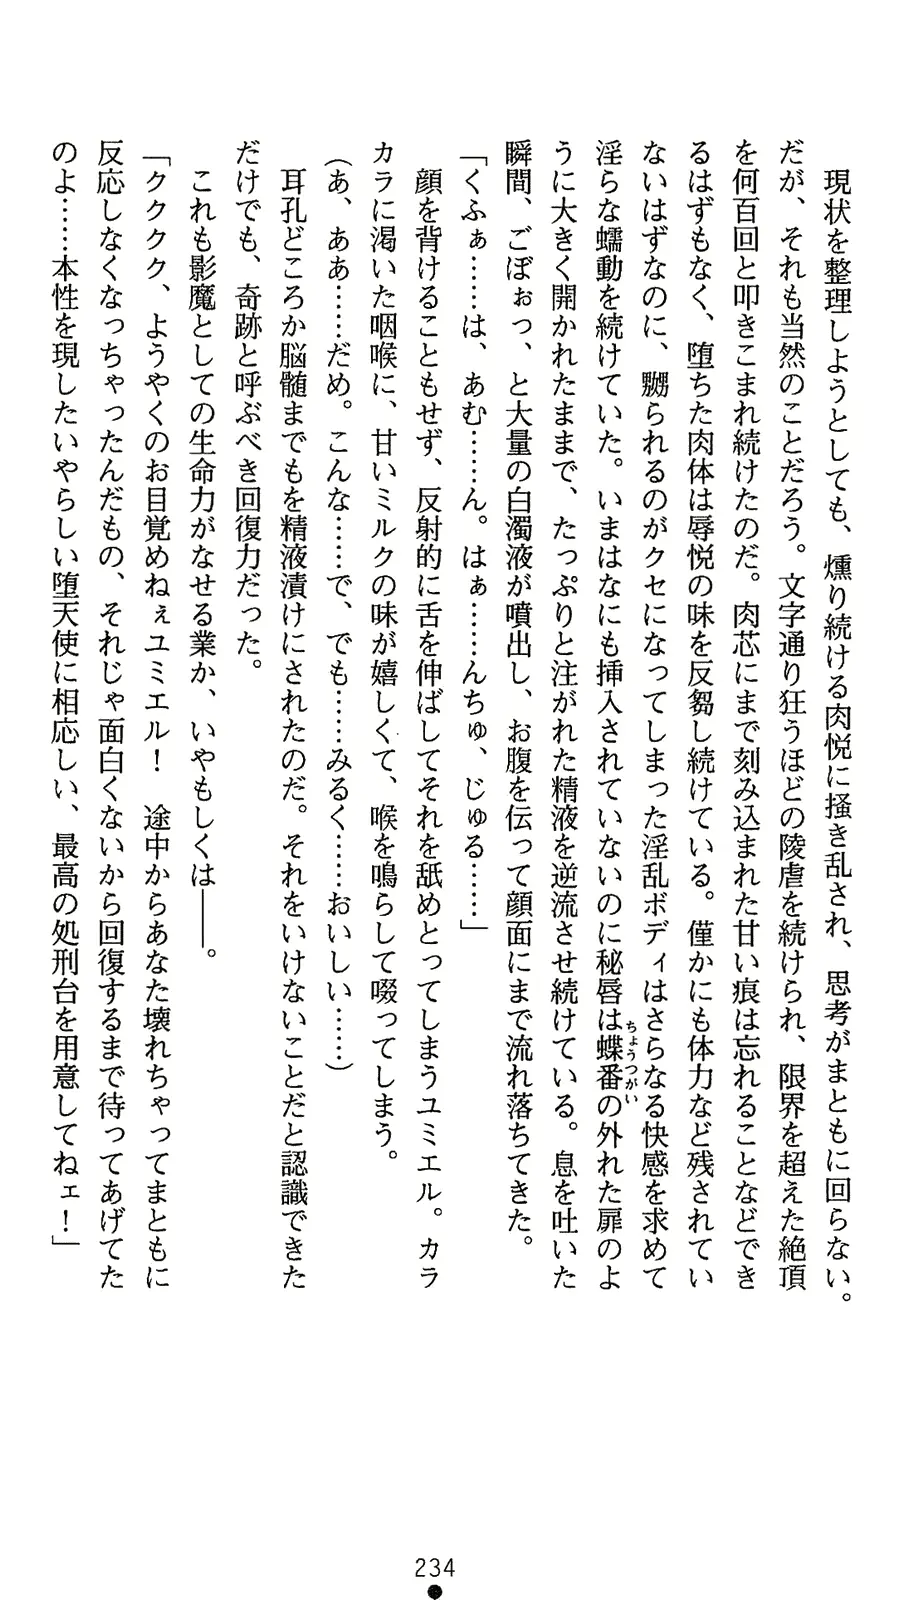 現状を整理しようとしても、燻り続ける肉悦に掻き乱され、思考がまともに回らない。
だが、それも当然のことだろう。文字通り狂うほどの陵虐を続けられ、限界を超えた絶頂
を何百回と叩きこまれ続けたのだ。肉芯にまで刻み込まれた甘い痕は忘れることなどでき
るはずもなく、堕ちた肉体は辱悦の味を反芻し続けている。僅かにも体力など残されてい
ないはずなのに、嬲られるのがクセになってしまった淫乱ボディはさらなる快感を求めて
淫らな蠕動を続けていた。いまはなにも挿入されていないのに秘唇は蝶番ちょうつがいの外れた扉のよ
うに大きく開かれたままで、たっぷりと注がれた精液を逆流させ続けている。息を吐いた
瞬間、ごぼぉっ、と大量の白濁液が噴出し、お腹を伝って顔面にまで流れ落ちてきた。
「くふぁ……は、あむ……ん。はぁ……んちゅ、じゅる……」
顔を背けることもせず、反射的に舌を伸ばしてそれを舐めとってしまうユミエル。カラ
カラに渇いた咽喉に、甘いミルクの味が嬉しくて、喉を鳴らして啜ってしまう。
(あ、ああ……だめ。こんな……で、でも……みるく……おいしい……)
耳孔どころか脳髄までもを精液漬けにされたのだ。それをいけないことだと認識できた
だけでも、奇跡と呼ぶべき回復力だった。
これも影魔としての生命力がなせる業か、いやもしくは――。
「クククク、ようやくのお目覚めねぇユミエル！　途中からあなた壊れちゃってまともに
反応しなくなっちゃったんだもの、それじゃ面白くないから回復するまで待ってあげてた
のよ……本性を現したいやらしい堕天使に相応しい、最高の処刑台を用意してねェ！」
234